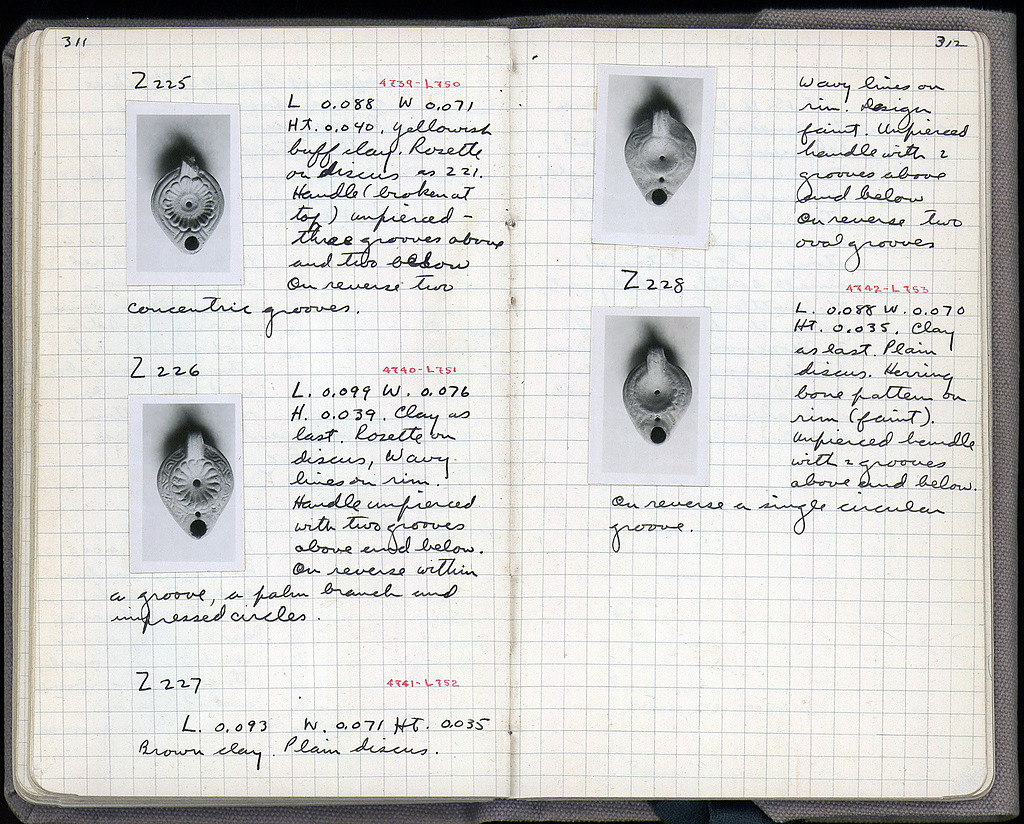 311
Z 225
4739-L750
L 0.088 W 0.071
HT. 0.040. Yellowish
buff clay. Rosette
on discus as 221.
Handle (broken at
top) unpierced -
three grooves above
and two below
On reverse two
concentric grooves.
Z 226
4740-L751
L. 0.099 W. 0.076
H. 0.039. Clay as
last. Rosette on
discus, Wavy
lines on rim.
Handle unpierced
with two grooves
above and below.
On reverse within
a groove, a palm branch and
impressed circles.
Z 227
4741-L752
L. 0.093 W. 0.071 HT. 0.035
Brown clay. Plain discus.
312
Wavy lines on
rim. Design
faint. Unpierced
handle with 2
grooves above
and below
On reverse two
oval grooves
Z 228
4742-L753
L. 0.088 W. 0.070
HT. 0.035. Clay
as last. Plain
discus. Herring
bone pattern on
rim (faint).
Unpierced handle
with 2 grooves
above and below.
On reverse a single circular
groove.